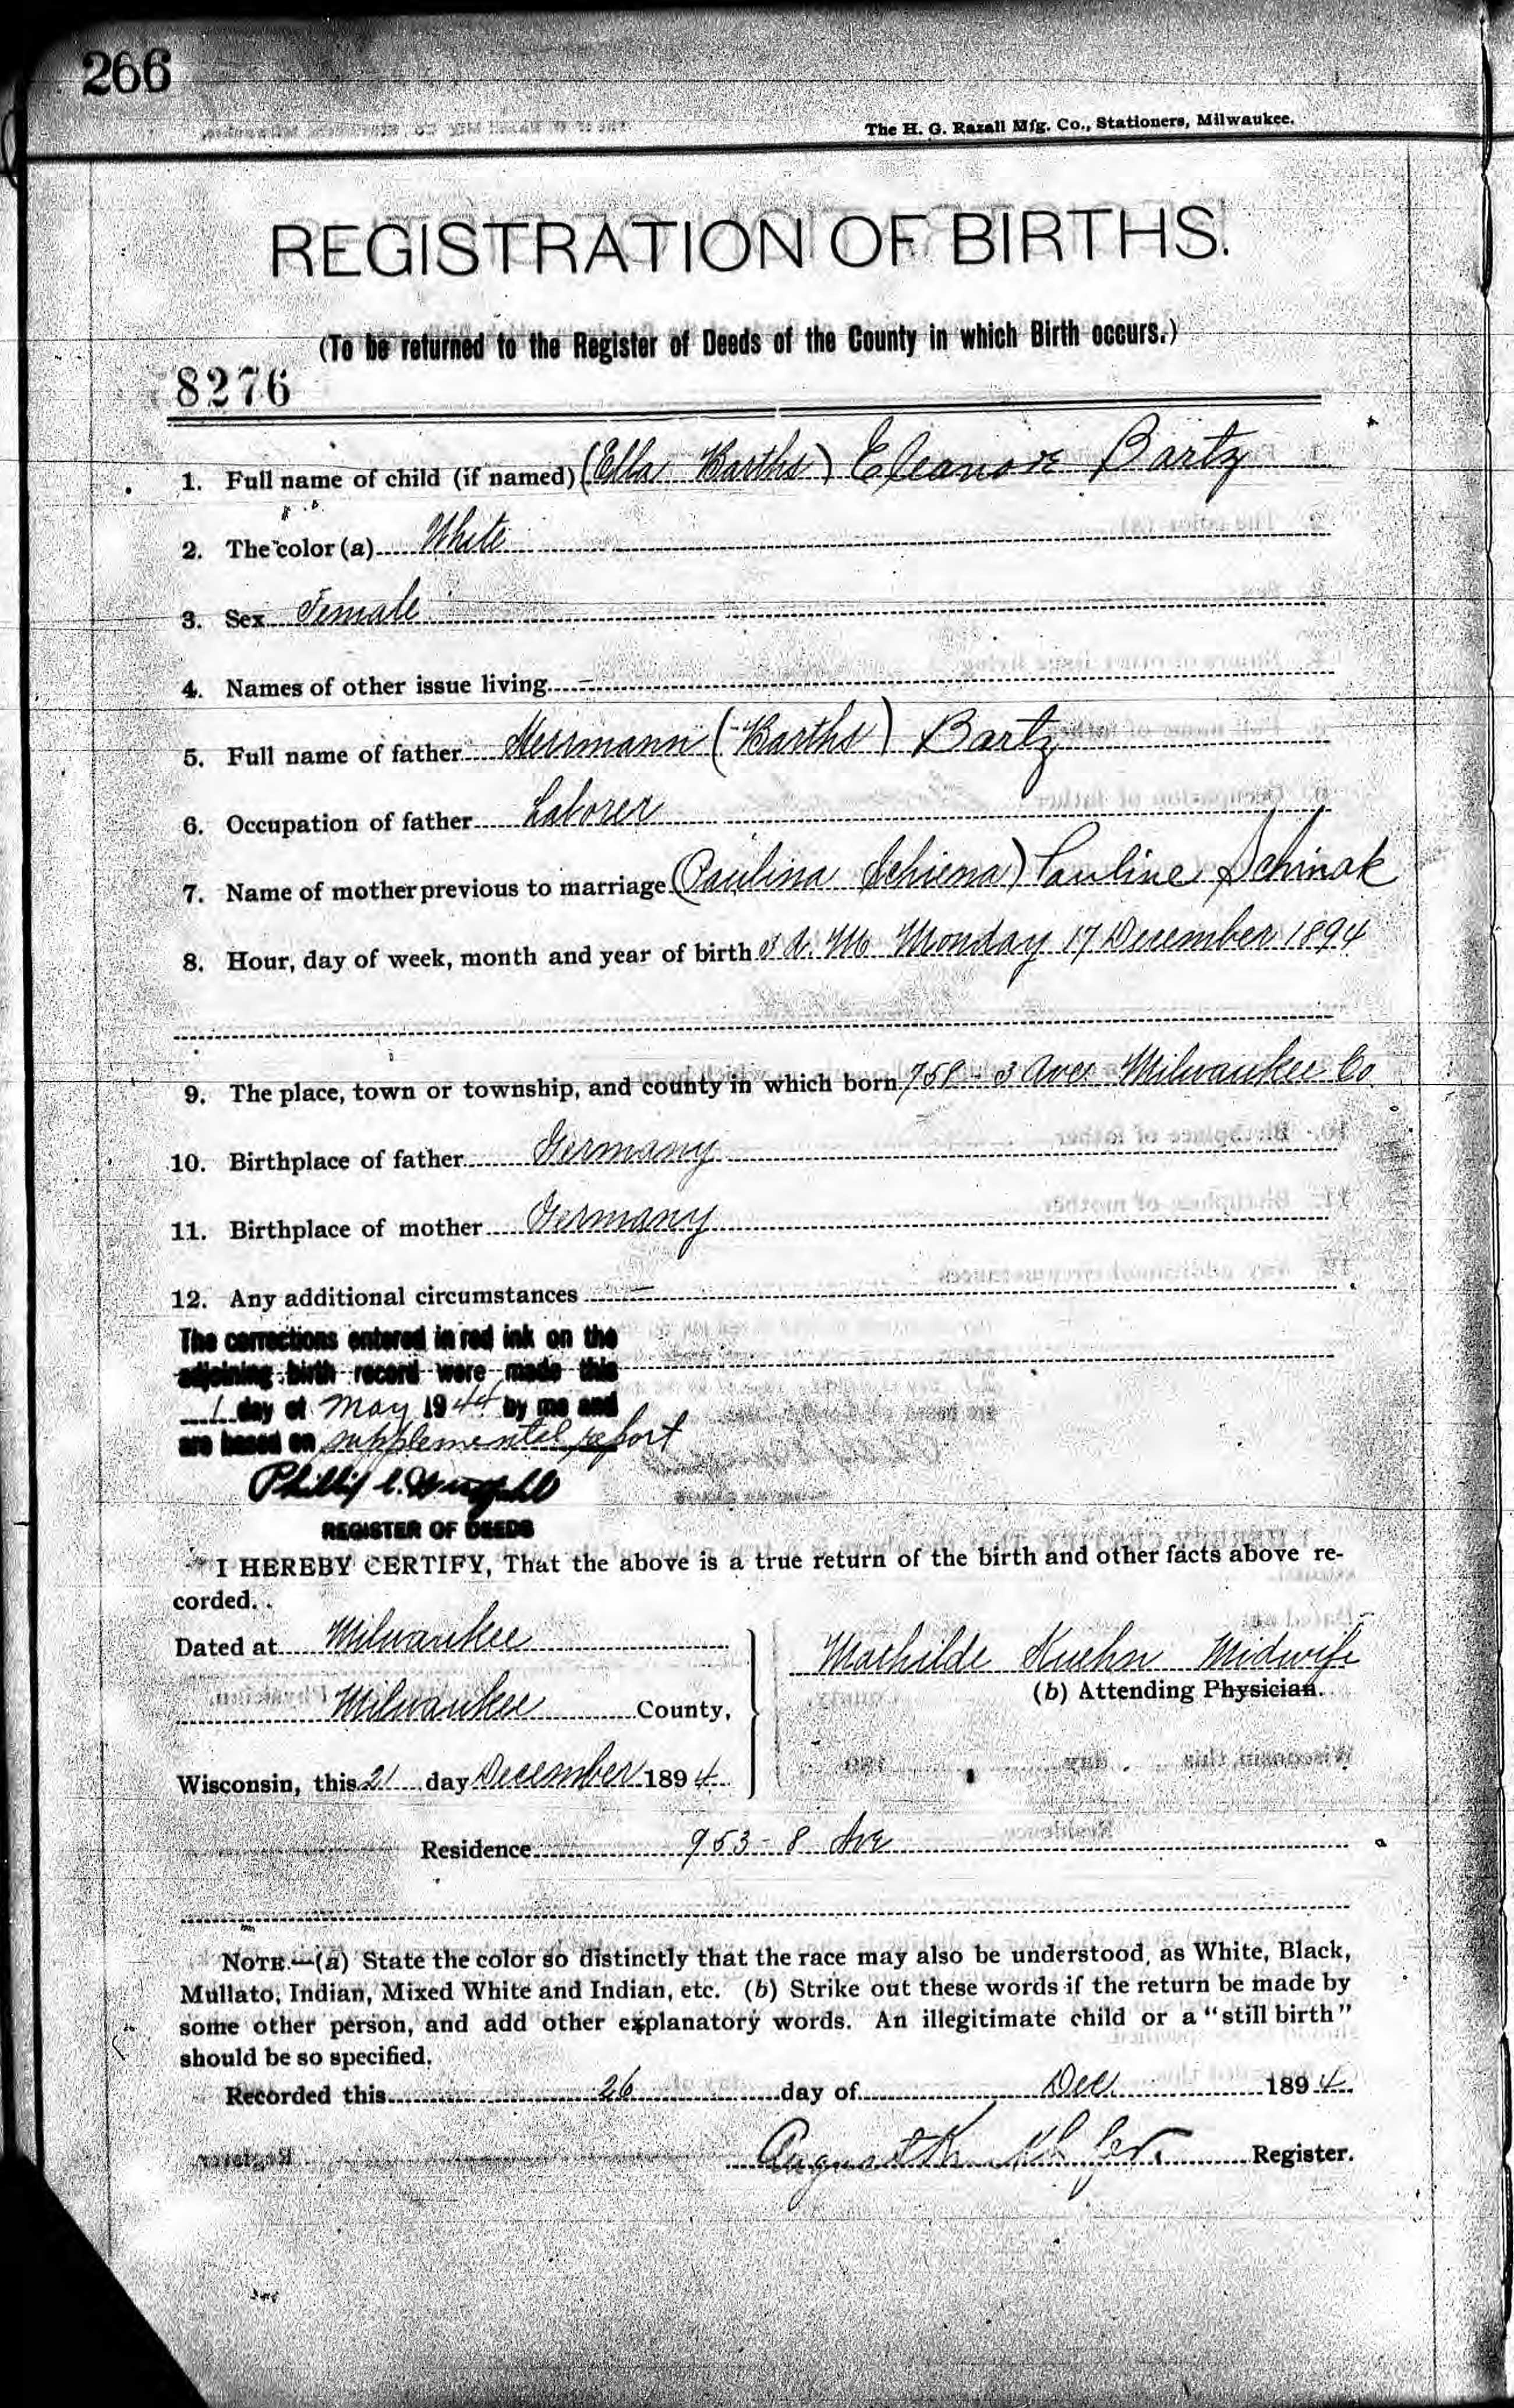 266
The H. G. Razall Mfg. Co., Stationers, Milwaukee.
REGISTRATION OF BIRTHS.
(To be returned to the Register of Deeds of the County in which Birth occurs.)
8276
1. Full name of child (if named) (Ella Barths) Eleanore Bartz
2. The color (a) White
3. Sex Female
4. Names of other issue living —
5. Full name of father Herrmann (Barths) Bartz
6. Occupation of father Laborer
7. Name of mother previous to marriage (Paulina Schiena) Pauline Schinak
8. Hour, day of week, month and year of birth A. M. Monday 17 December 1894
9. The place, town or township, and county in which born 758 - 3 Ave Milwaukee Co
10. Birthplace of father Germany
11. Birthplace of mother Germany
12. Any additional circumstances —
The corrections entered in red ink on the
adjoining birth record were made this
1 day of May 1944 by me and
are based on supplemental report
Phillip C.
REGISTER OF DEEDS
I HEREBY CERTIFY, That the above is a true return of the birth and other facts above re-
corded.
Dated at Milwaukee
Mathilde Kuehn Midwife
Milwaukee County,
(b) Attending Physician.
Wisconsin, this 21 day December 1894
Residence 953 - 8 Ave
NOTE.—(a) State the color so distinctly that the race may also be understood, as White, Black,
Mullato, Indian, Mixed White and Indian, etc. (b) Strike out these words if the return be made by
some other person, and add other explanatory words. An illegitimate child or a "still birth"
should be so specified.
Recorded this 26 day of Dec 1894
August Register.